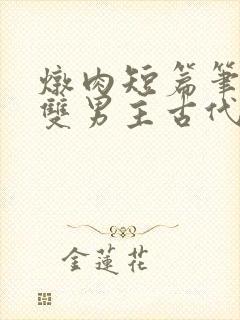 燉肉短篇筆
雙男主古代
金蓮花